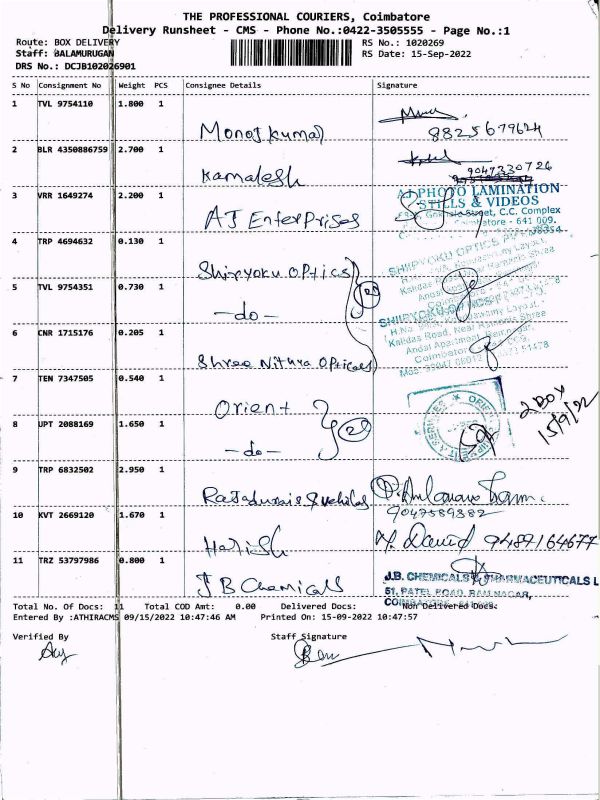 THE PROFESSIONAL COURIERS, Coimbatore
Delivery Runsheet - CMS - Phone No.:0422-3505555 - Page No.:1
Route: BOX DELIVERY
Staff: BALAMURUGAN
DRS No.: DCJB102026901
RS No.: 1020269
RS Date: 15-Sep-2022
S No Consignment No Weight PCS Consignee Details Signature
1 TVL 9754110 1.800 1
Manoj kumar 8825679624
2 BLR 4350886759 2.700 1
Kamalesh 9047330726
3 VRR 1649274 2.200 1
AJ PHOTO LAMINATION
STILLS & VIDEOS
Street, C.C. Complex
AJ Enterprises
4 TRP 4694632 0.130 1
Shipyoku Optics
SHIIPYOKU OPTICS
5 TVL 9754351 0.730 1
-do-
SHIIPYOKU OPTICS
6 CNR 1715176 0.205 1
Kalidas Road, Near Ramnagar Shree
Shree Nithya Opticals
7 TEN 7347505 0.540 1
Orient
2 BOX
15/9/22
8 UPT 2088169 1.650 1
-do-
9 TRP 6832502 2.950 1
9047589382
10 KVT 2669120 1.670 1
Harish Y. David 9489164677
11 TRZ 53797986 0.800 1
J B Chemicals
J.B. CHEMICALS & PHARMACEUTICALS L
51, PATEL ROAD, RAMNAGAR,
Total No. Of Docs: 11 Total COD Amt: 0.00 Delivered Docs: Non Delivered Docs:
Entered By :ATHIRACMS 09/15/2022 10:47:46 AM Printed On: 15-09-2022 10:47:57
Verified By Staff Signature